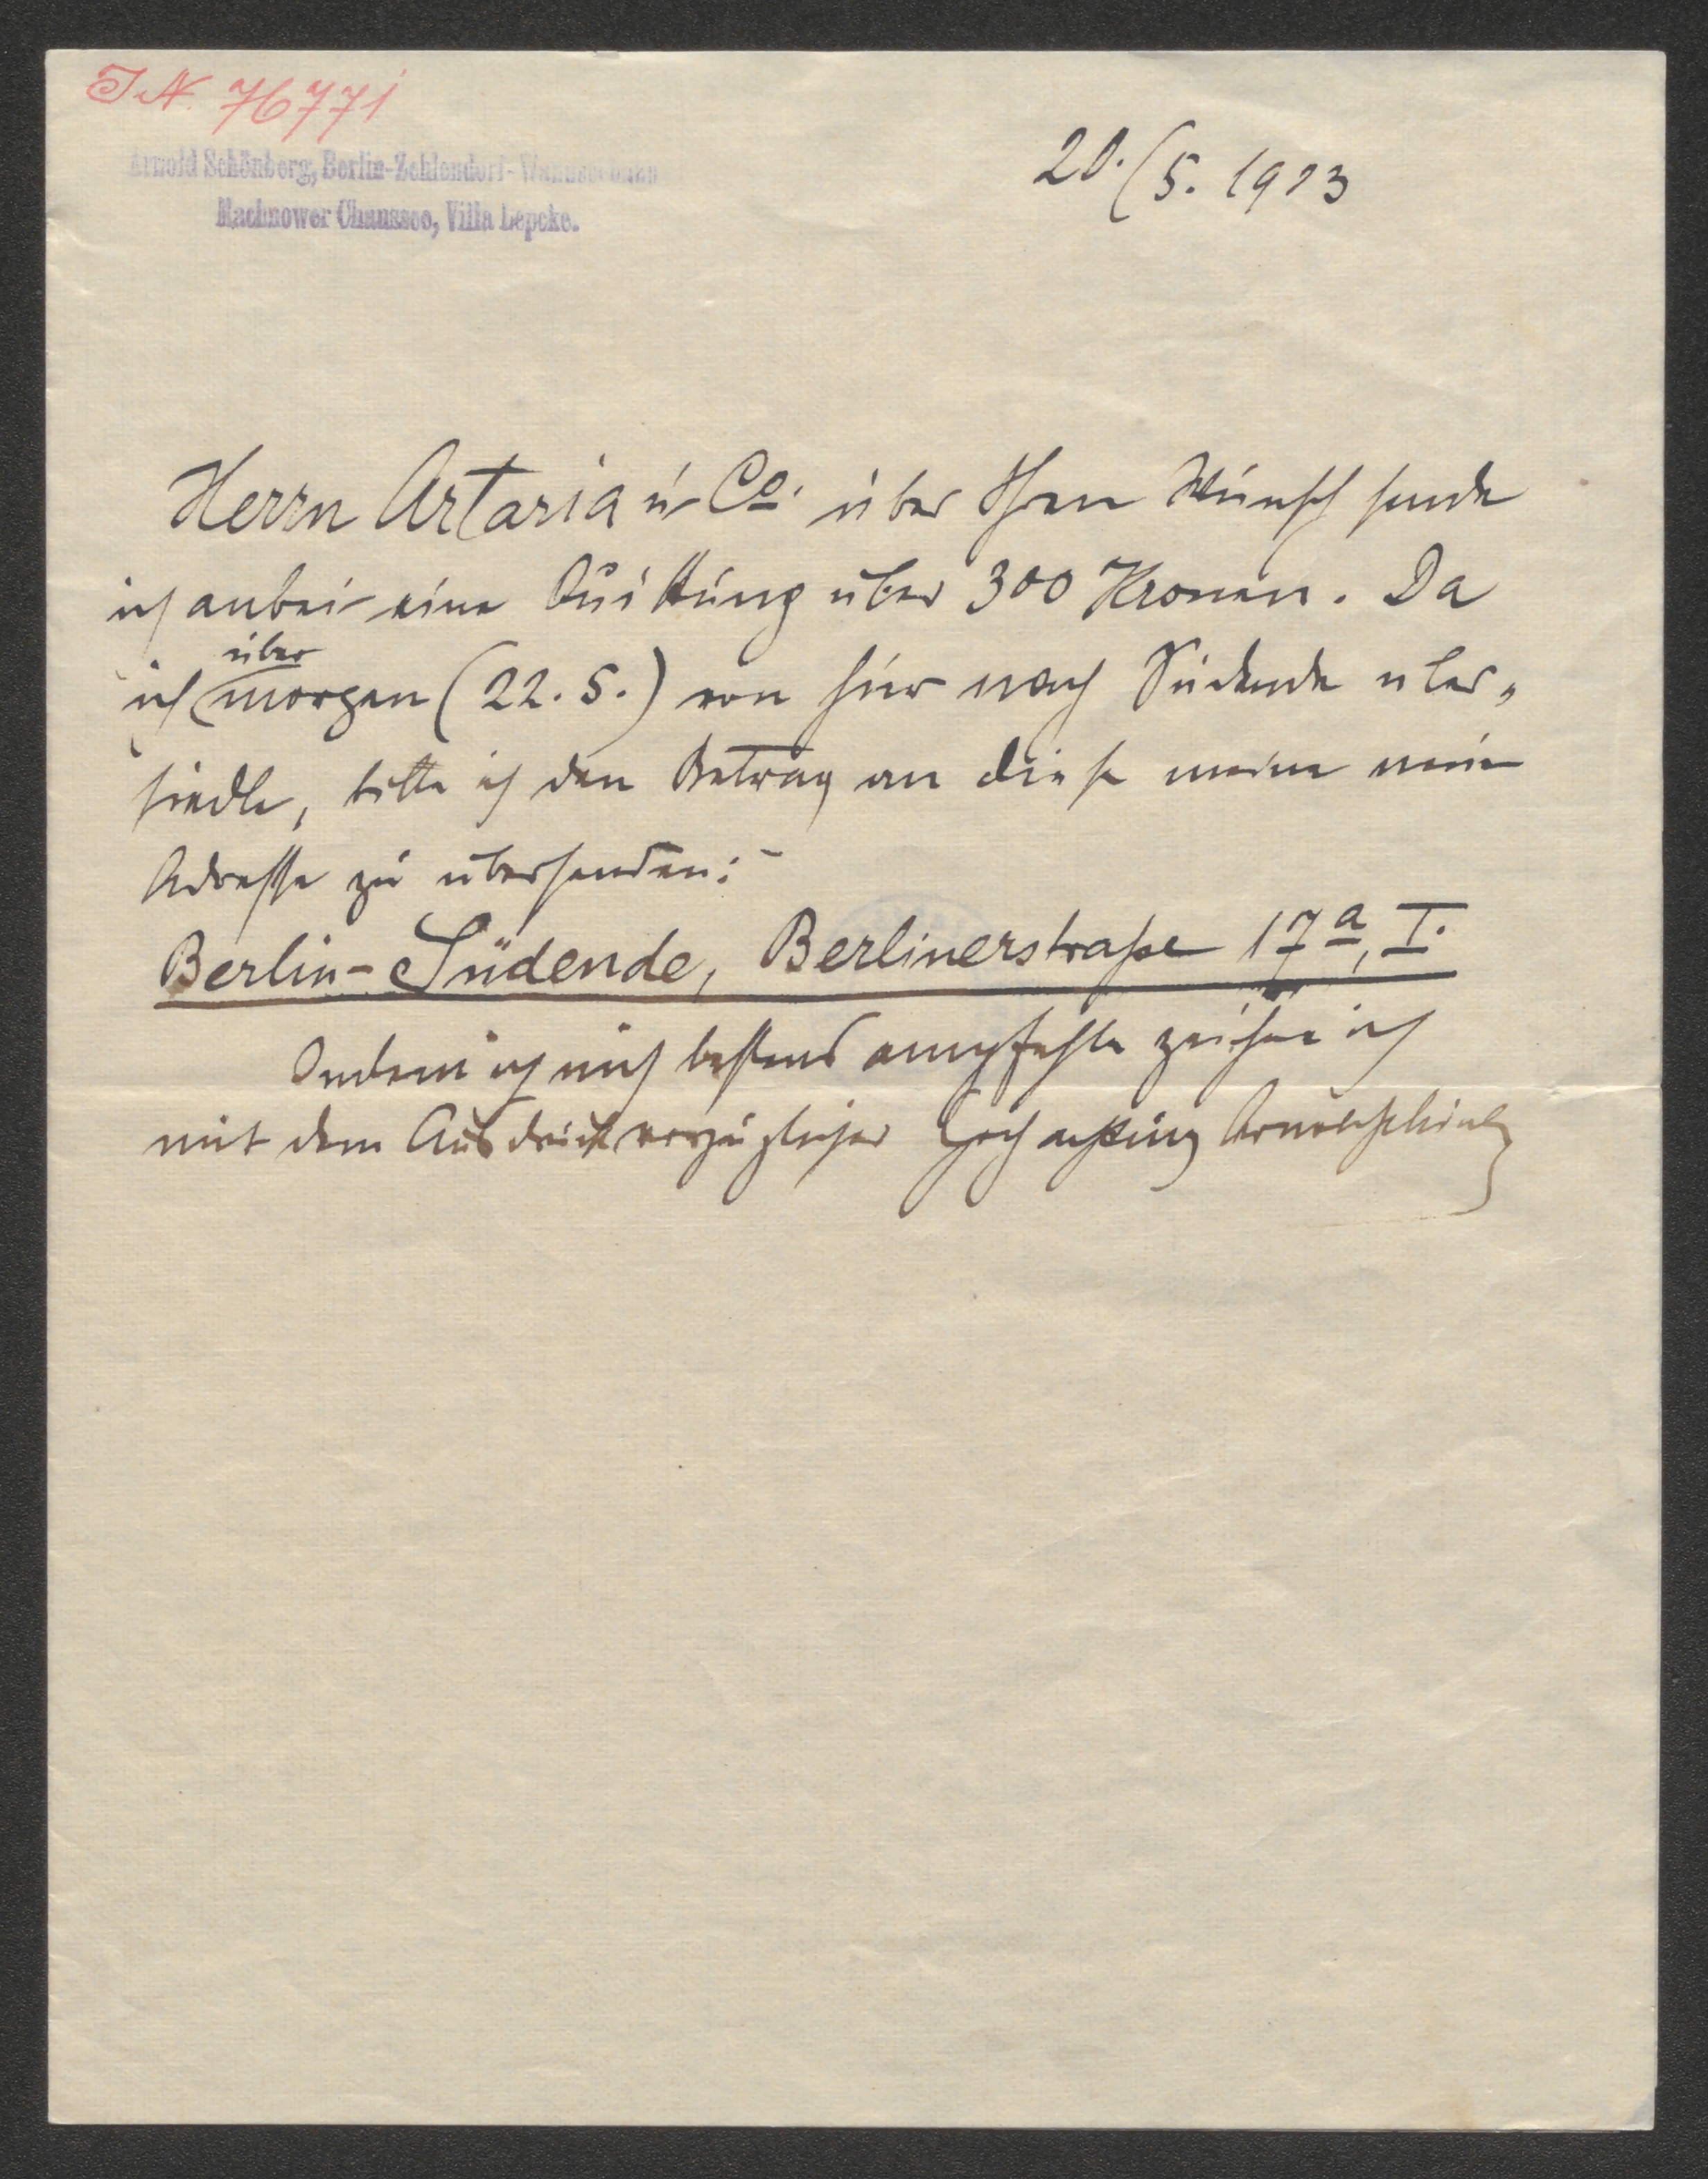 I.N. 76771
Arnold Schönberg, Berlin-Zehlendorf-Wannseebahn
Machnower Chaussee, Villa Lepcke.
20./5. 1913
Herrn Artaria u Co. über Ihren Wunsch sende
ich anbei eine Quittung über 300 Kronen. Da
über
ich morgen (22. 5.) von hier nach Südende über-
siedle, bitte ich den Betrag an diese meine neue
Adresse zu übersenden:
Berlin-Südende, Berlinerstraße 17a, I.
Indem ich mich bestens empfehle zeichne ich
mit dem Ausdruck vorzüglicher Hochachtung Arnold Schönberg